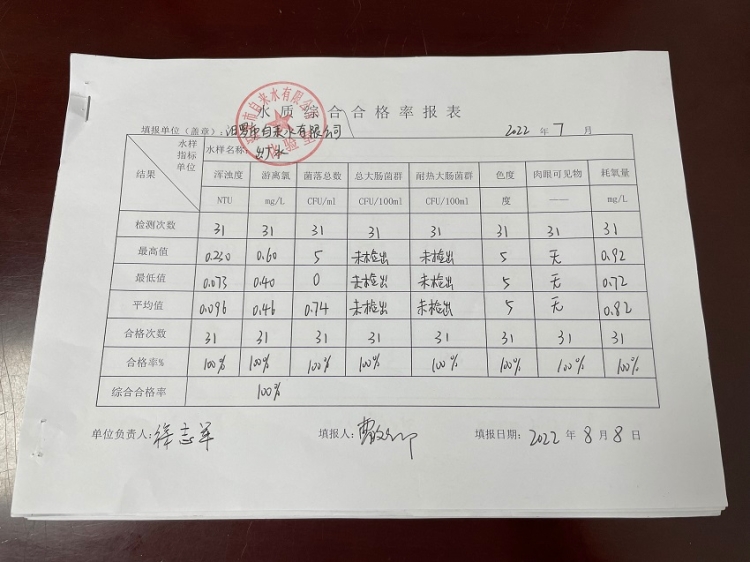 水质综合合格率报表
填报单位（盖章）：汨罗市自来水有限公司 2022 年 7 月
水样 指标 单位 结果 水样名称：出厂水
浑浊度 游离氯 菌落总数 总大肠菌群 耐热大肠菌群 色度 肉眼可见物 耗氧量
NTU mg/L CFU/ml CFU/100ml CFU/100ml 度 —— mg/L
检测次数 31 31 31 31 31 31 31 31
最高值 0.230 0.60 5 未检出 未检出 5 无 0.92
最低值 0.073 0.40 0 未检出 未检出 5 无 0.72
平均值 0.096 0.46 0.74 未检出 未检出 5 无 0.82
合格次数 31 31 31 31 31 31 31 31
合格率% 100% 100% 100% 100% 100% 100% 100% 100%
综合合格率 100%
单位负责人：徐志军 填报人： 填报日期：2022 年 8 月 8 日